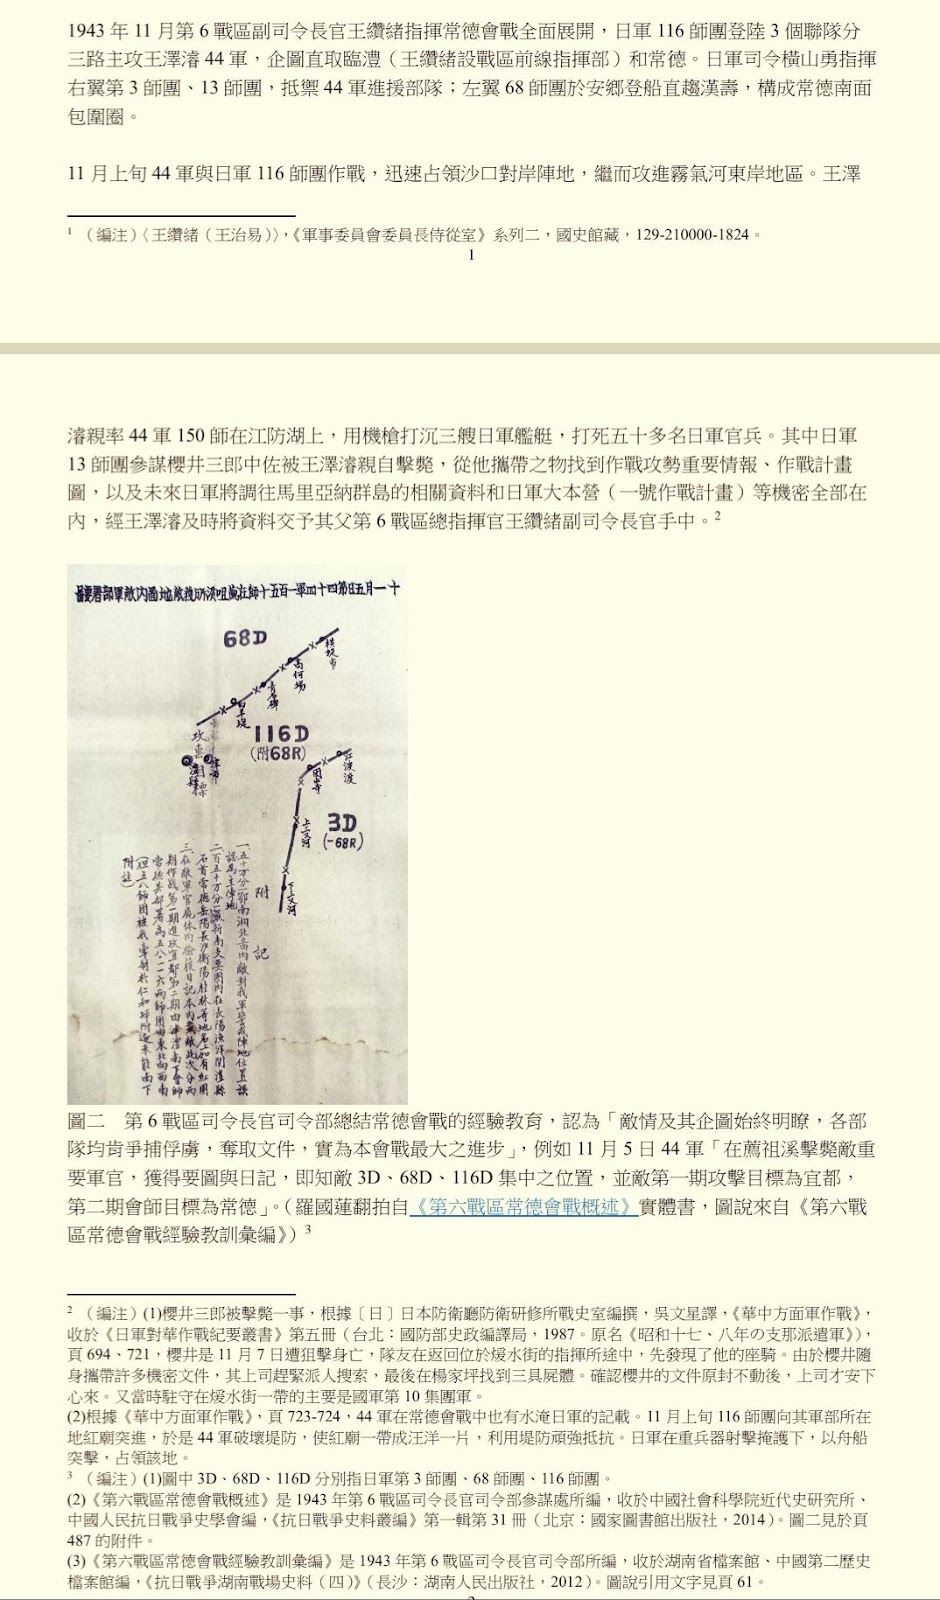 1943 年 11 月第 6 戰區副司令長官王纘緒指揮常德會戰全面展開，日軍 116 師團登陸 3 個聯隊分
三路主攻王澤濬 44 軍，企圖直取臨澧（王纘緒設戰區前線指揮部）和常德。日軍司令橫山勇指揮
右翼第 3 師團、13 師團，抵禦 44 軍進援部隊；左翼 68 師團於安鄉登船直趨漢壽，構成常德南面
包圍圈。
11 月上旬 44 軍與日軍 116 師團作戰，迅速占領沙口對岸陣地，繼而攻進霧氣河東岸地區。王澤
1 （編注）〈王纘緒（王治易）〉，《軍事委員會委員長侍從室》系列二，國史館藏，129-210000-1824。
1
濬親率 44 軍 150 師在江防湖上，用機槍打沉三艘日軍艦艇，打死五十多名日軍官兵。其中日軍
13 師團參謀櫻井三郎中佐被王澤濬親自擊斃，從他攜帶之物找到作戰攻勢重要情報、作戰計畫
圖，以及未來日軍將調往馬里亞納群島的相關資料和日軍大本營（一號作戰計畫）等機密全部在
內，經王澤濬及時將資料交予其父第 6 戰區總指揮官王纘緒副司令長官手中。2
十一月五日第四十四軍一百五十師在薦祖溪所獲敵地圖內敵軍部署要圖
68D
116D
(附68R)
3D
(-68R)
攻擊目標
上三汊河
下三汊河
附記
圖二　第 6 戰區司令長官司令部總結常德會戰的經驗教育，認為「敵情及其企圖始終明瞭，各部
隊均肯爭捕俘虜，奪取文件，實為本會戰最大之進步」，例如 11 月 5 日 44 軍「在薦祖溪擊斃敵重
要軍官，獲得要圖與日記，即知敵 3D、68D、116D 集中之位置，並敵第一期攻擊目標為宜都，
第二期會師目標為常德」。（羅國蓮翻拍自《第六戰區常德會戰概述》實體書，圖說來自《第六戰
區常德會戰經驗教訓彙編》）3
2 （編注）(1)櫻井三郎被擊斃一事，根據〔日〕日本防衛廳防衛研修所戰史室編撰，吳文星譯，《華中方面軍作戰》，
收於《日軍對華作戰紀要叢書》第五冊（台北：國防部史政編譯局，1987。原名《昭和十七、八年の支那派遣軍》），
頁 694、721，櫻井是 11 月 7 日遭狙擊身亡，隊友在返回位於煖水街的指揮所途中，先發現了他的座騎。由於櫻井隨
身攜帶許多機密文件，其上司趕緊派人搜索，最後在楊家坪找到三具屍體。確認櫻井的文件原封不動後，上司才安下
心來。又當時駐守在煖水街一帶的主要是國軍第 10 集團軍。
(2)根據《華中方面軍作戰》，頁 723-724，44 軍在常德會戰中也有水淹日軍的記載。11 月上旬 116 師團向其軍部所在
地紅廟突進，於是 44 軍破壞堤防，使紅廟一帶成汪洋一片，利用堤防頑強抵抗。日軍在重兵器射擊掩護下，以舟船
突擊，占領該地。
3 （編注）(1)圖中 3D、68D、116D 分別指日軍第 3 師團、68 師團、116 師團。
(2)《第六戰區常德會戰概述》是 1943 年第 6 戰區司令長官司令部參謀處所編，收於中國社會科學院近代史研究所、
中國人民抗日戰爭史學會編，《抗日戰爭史料叢編》第一輯第 31 冊（北京：國家圖書館出版社，2014）。圖二見於頁
487 的附件。
(3)《第六戰區常德會戰經驗教訓彙編》是 1943 年第 6 戰區司令長官司令部所編，收於湖南省檔案館、中國第二歷史
檔案館編，《抗日戰爭湖南戰場史料（四）》（長沙：湖南人民出版社，2012）。圖說引用文字見頁 61。